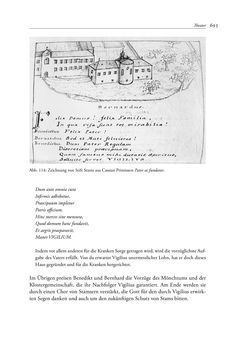 Theater 693
BERNARDUS.
plex Domus! felix Familia,
In qua visa sunt tot mirabilia!
Benedictus Felix Pater!
Bernardus Sed et Mater felicior!
Benedictus Dum Pater Regulam
Discretam praescripsit,
Bernardus
Abb. 114: Zeichnung von Stift Stams aus Cassian Primissers Pater et fundator.
Dum cum omnia cura
Infirmis adhibetur,
Praecipuum impletur
Patris officium.
Hinc merces sine mensura,
Quod domum hanc fundavit,
Et aegris praeparavit,
Manet VIGILIUM.
Indem vor allem anderen für die Kranken Sorge getragen wird, wird die vorzüglichste Auf-
gabe des Vaters erfüllt. Von da erwartet Vigilius unermesslicher Lohn, hat er doch dieses
Haus gegründet und für die Kranken hergerichtet.
Im Übrigen preisen Benedikt und Bernhard die Vorzüge des Mönchtums und der
Klostergemeinschaft, die ihr Nachfolger Vigilius garantiert. Am Ende werden sie
durch einen Chor von Stamsern verstärkt, die Gott für den durch Vigilius erwirk-
ten Segen danken und auch um den zukünftigen Schutz von Stams bitten.